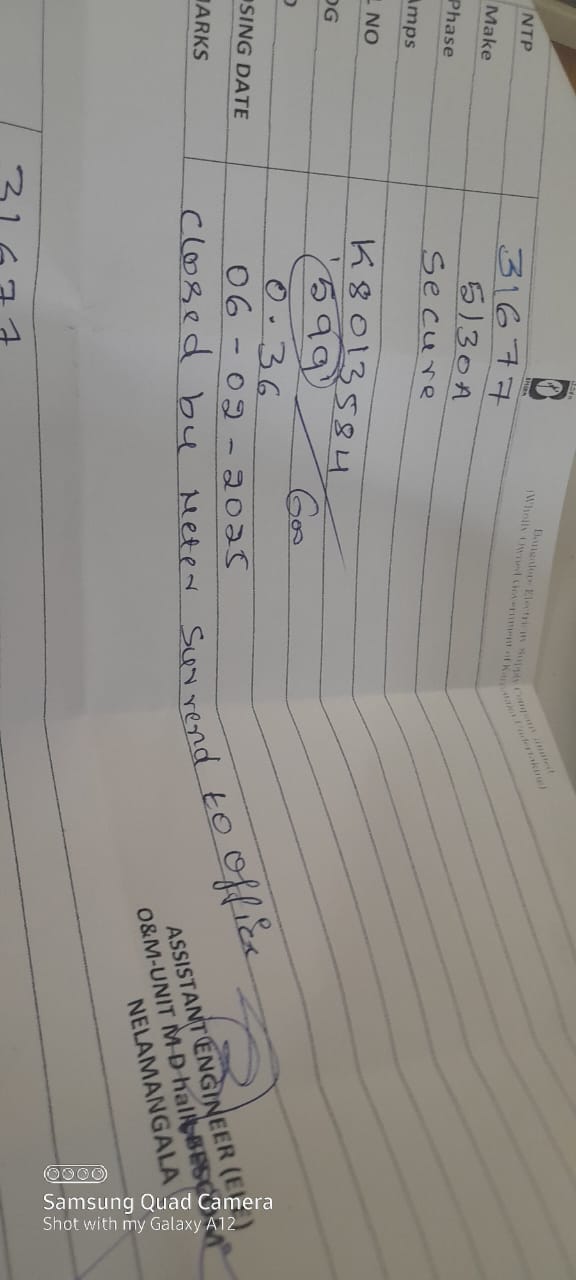 Bangalore Electricity Supply Company Limited
(Wholly Owned Government of Karnataka Undertaking)
NTP 31677
Make 5/30A
Phase Secure
Amps
L NO K8013584
OG 599 600
D 0.36
OSING DATE 06-09-2025
MARKS Cloosed by Meter Surrend to office
ASSISTANT ENGINEER (Ele)
O&M-UNIT M D halli BESCOM
NELAMANGALA
31677
Samsung Quad Camera
Shot with my Galaxy A12